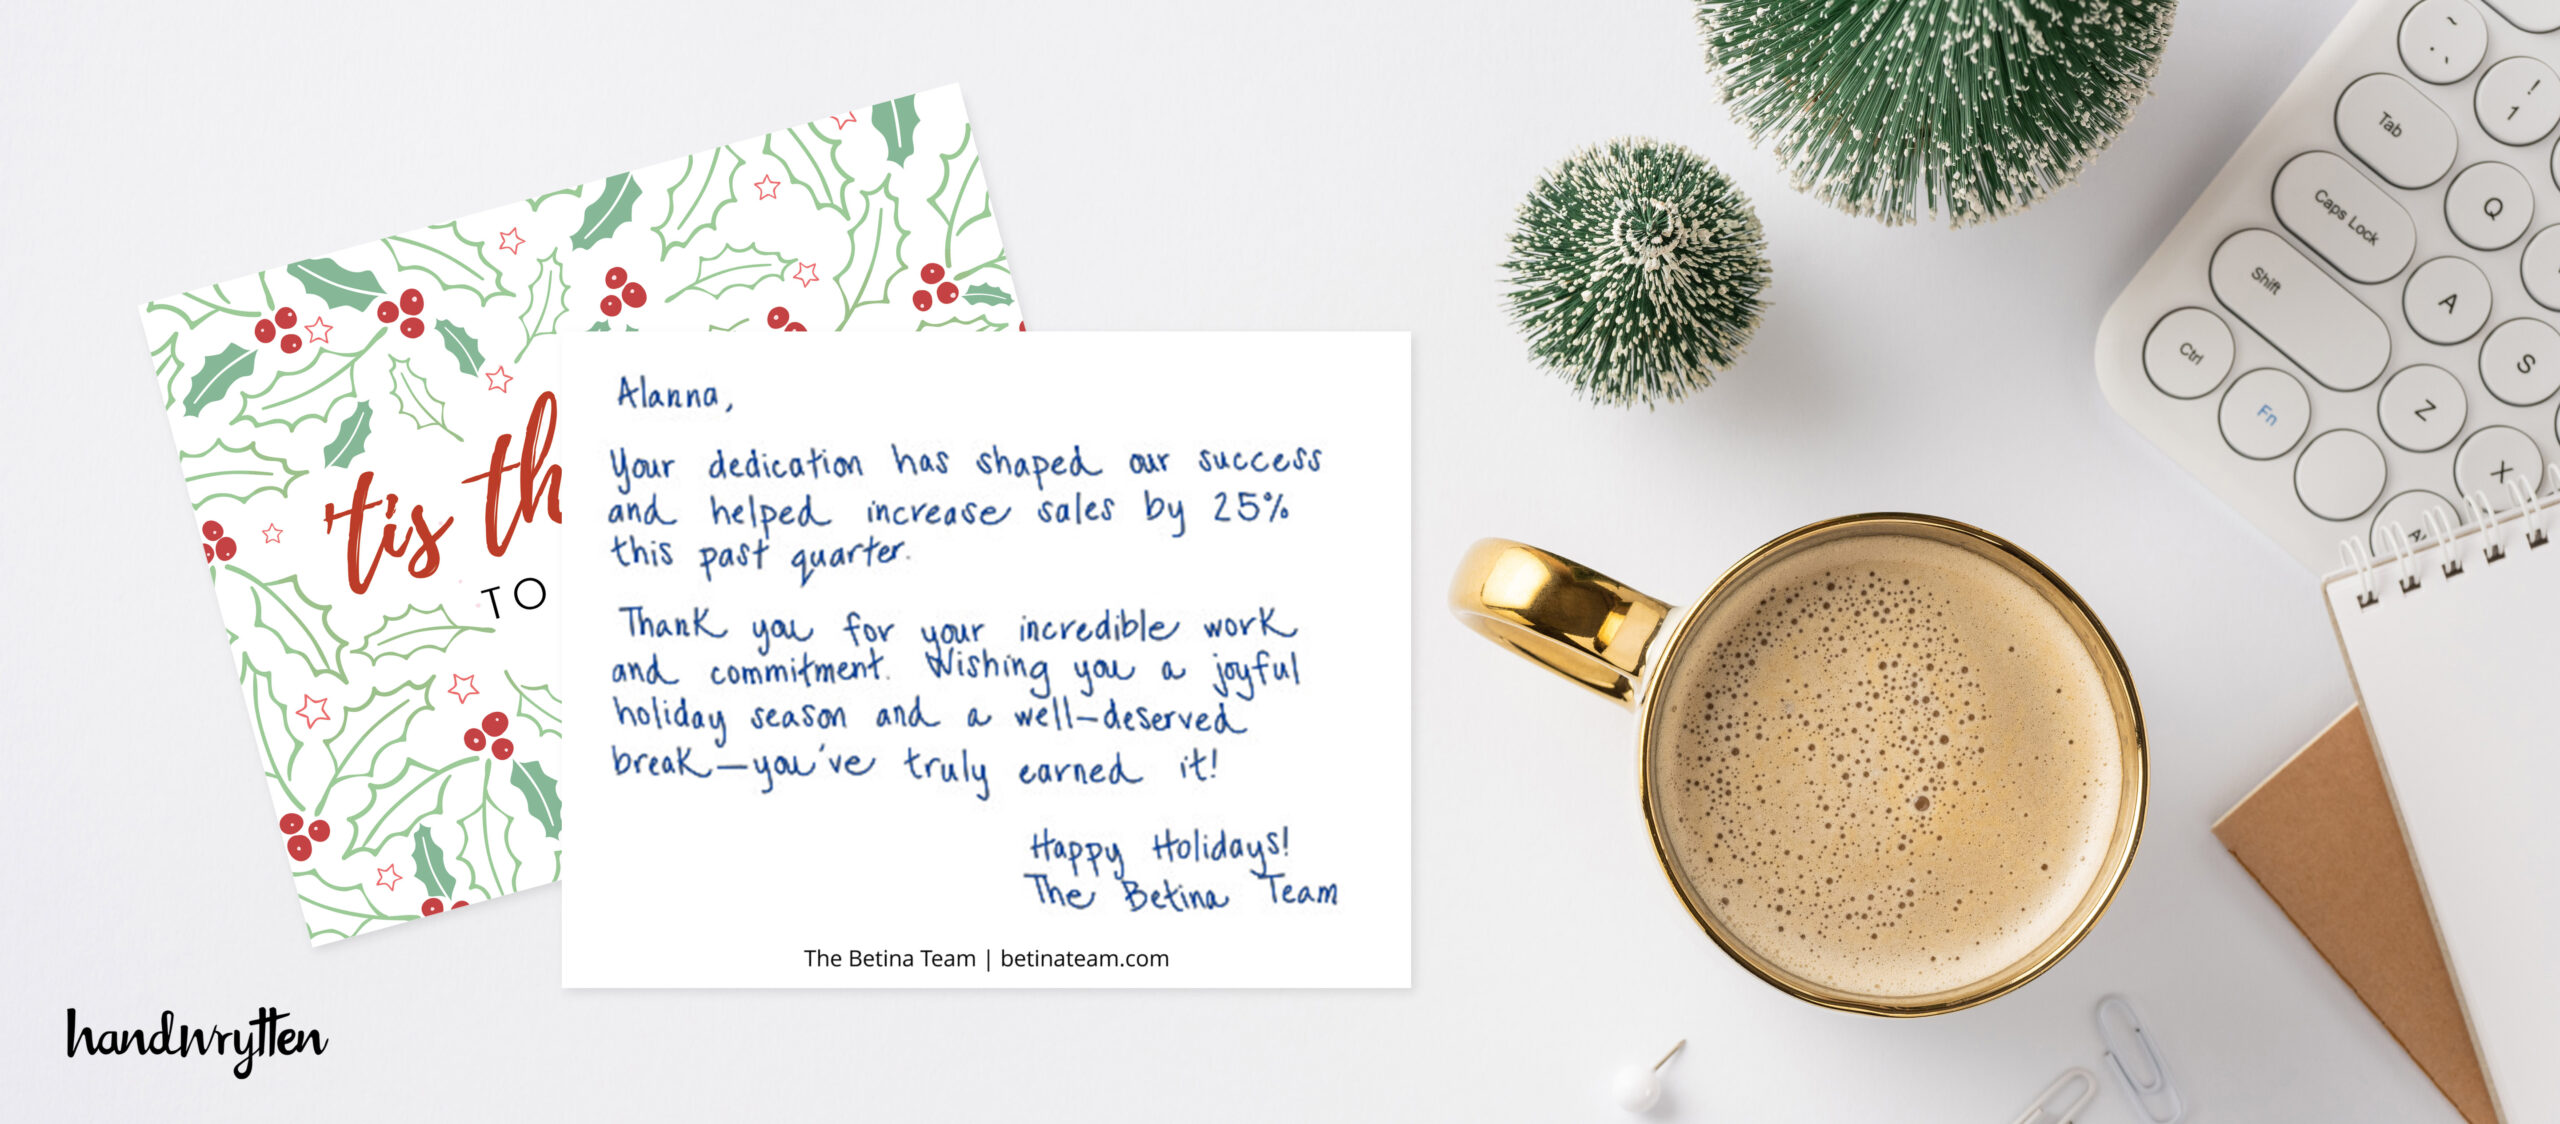 'tis th
TO
Alanna,
Your dedication has shaped our success
and helped increase sales by 25%
this past quarter.
Thank you for your incredible work
and commitment. Wishing you a joyful
holiday season and a well-deserved
break—you've truly earned it!
Happy Holidays!
The Betina Team
The Betina Team | betinateam.com
handwrytten
~
!
1
Tab
Q
Caps Lock
A
Shift
S
Ctrl
Z
Fn
X